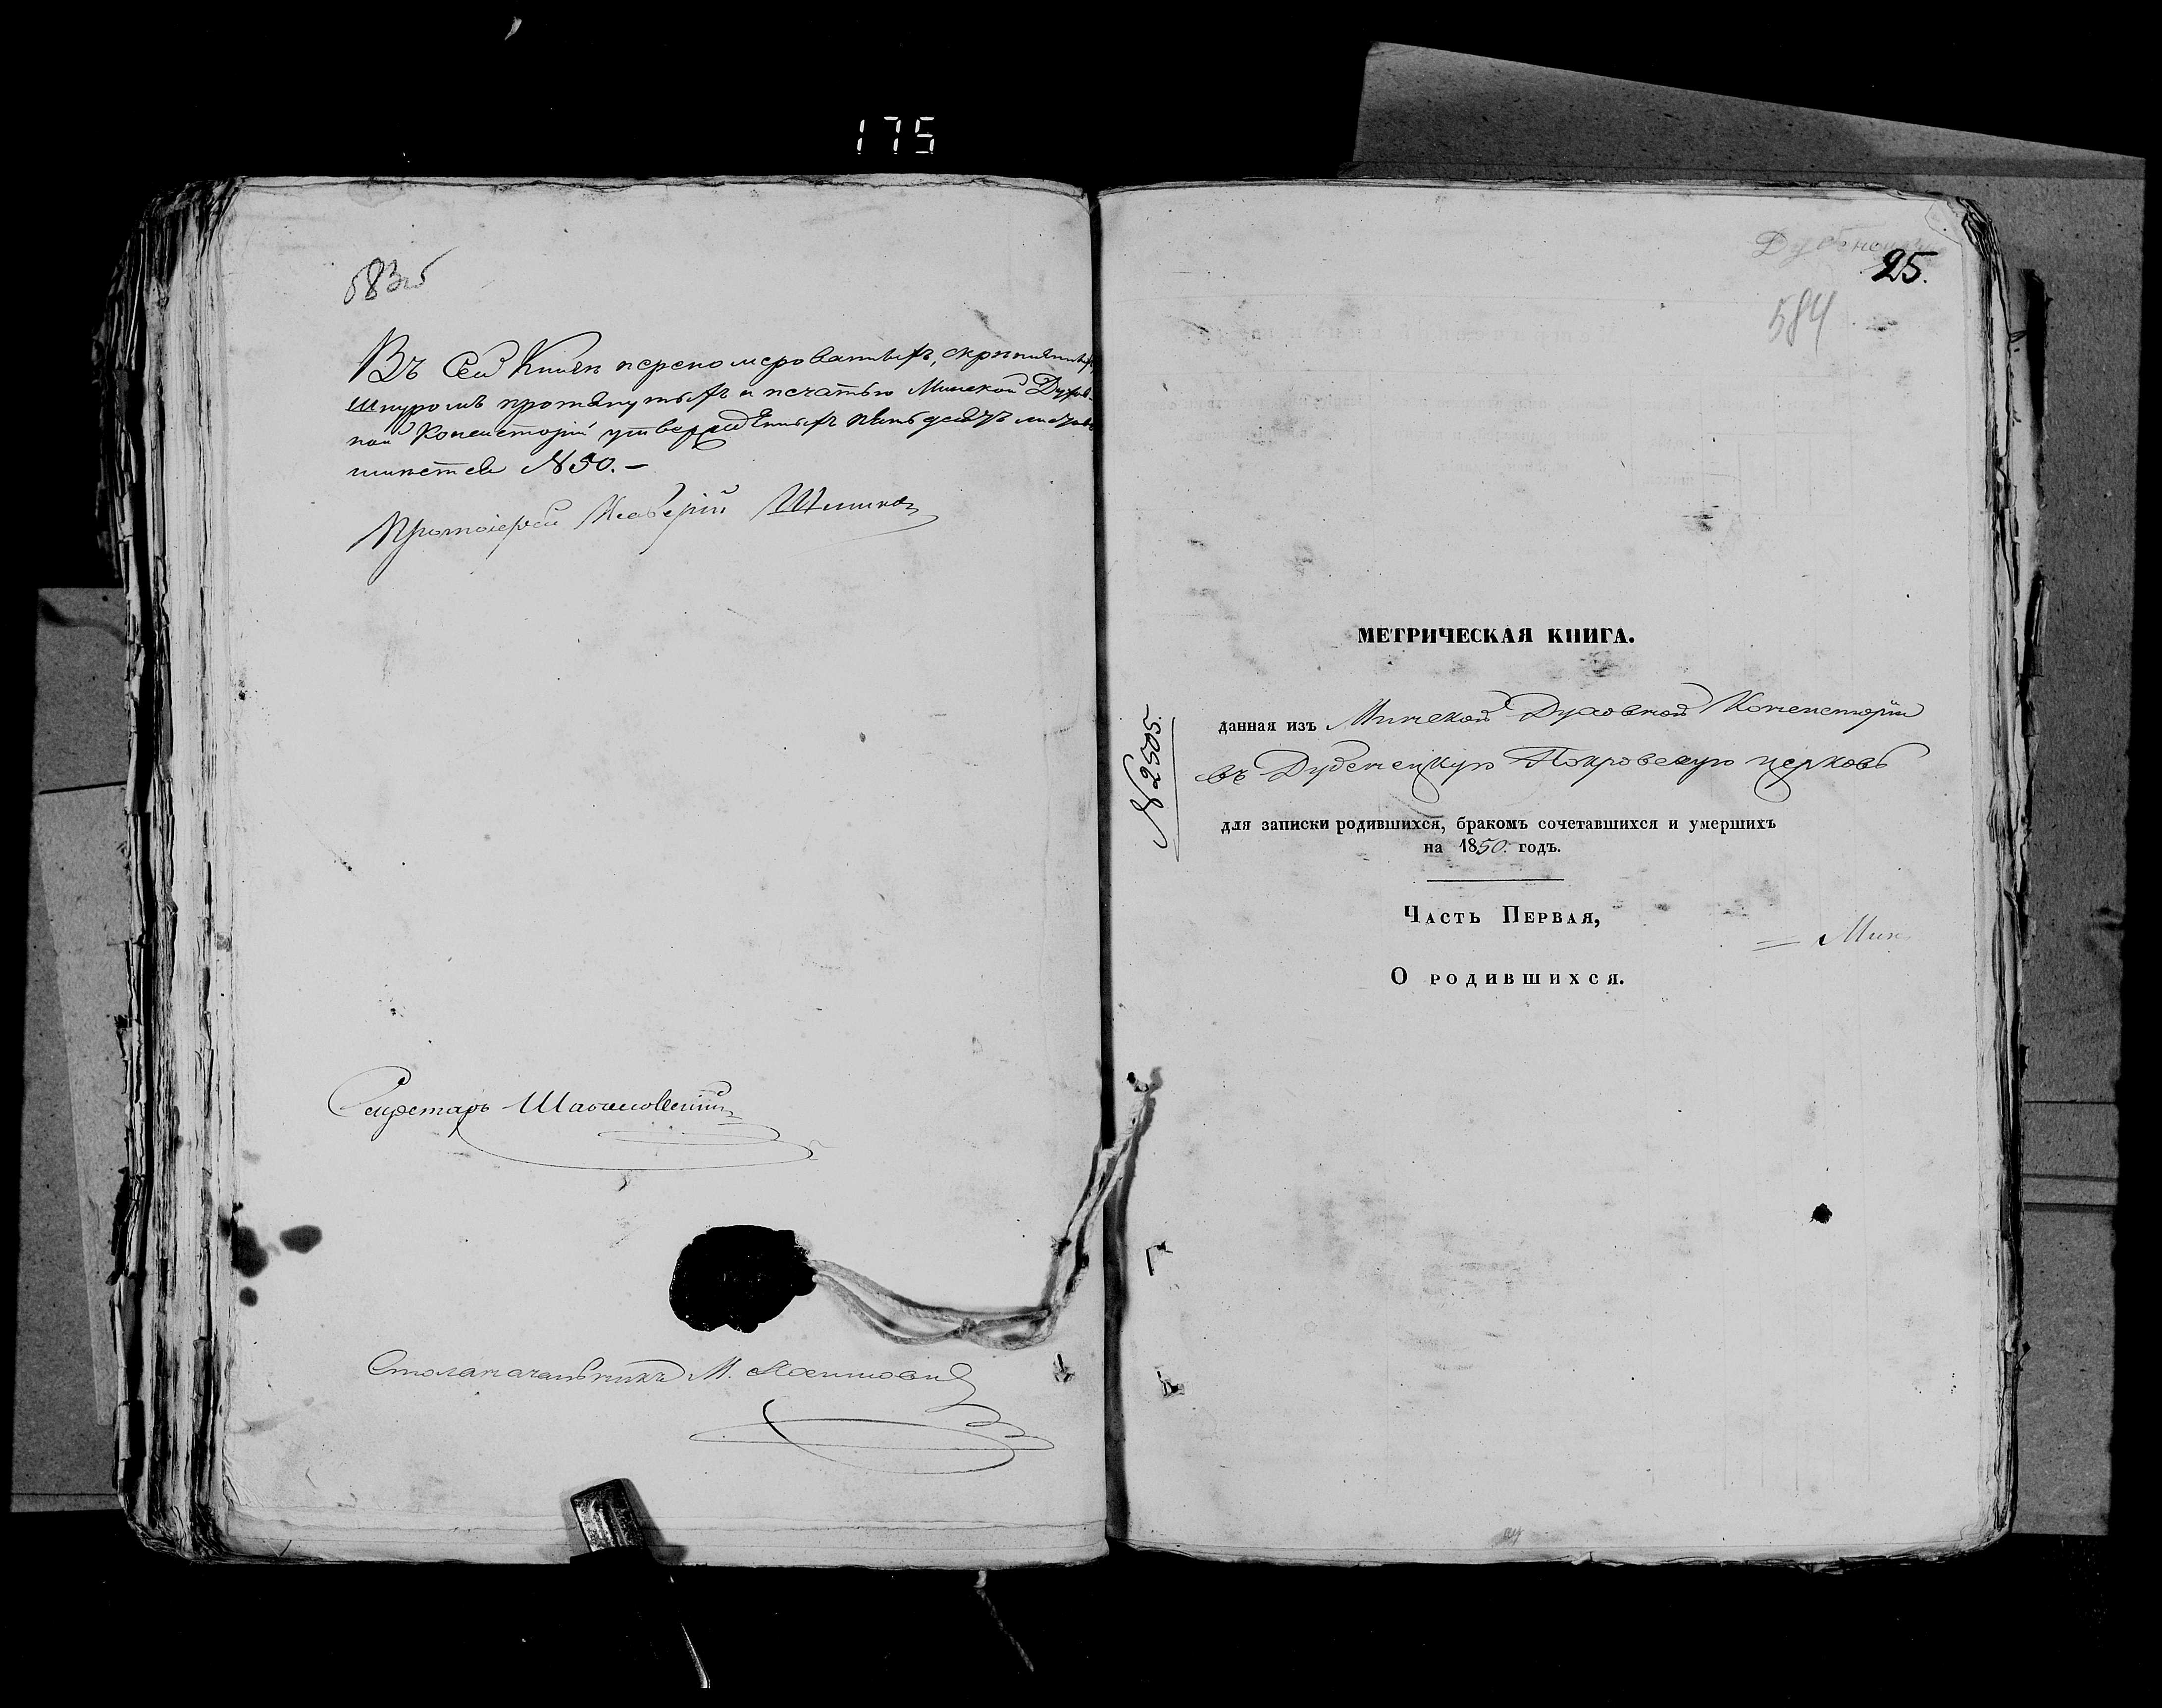 175
583об
Въ сей Книгѣ перепомерованныхъ, скрѣпленныхъ,
шнуромъ протянутыхъ и печатью Минской Духов-
ной Консисторіи утвержденныхъ пять десятъ листовъ
числится №50.-
Протоіерей Шимко
Секретарь
Столоначальникъ М.
25.
584
МЕТРИЧЕСКАЯ КНИГА.
данная изъ Минской Духовной Консисторіи
въ Дубенецкую Покровскую церковь
№2505.
для записки родившихся, бракомъ сочетавшихся и умершихъ
на 1850. годъ.
Часть Первая,
= Мин
О родившихся.